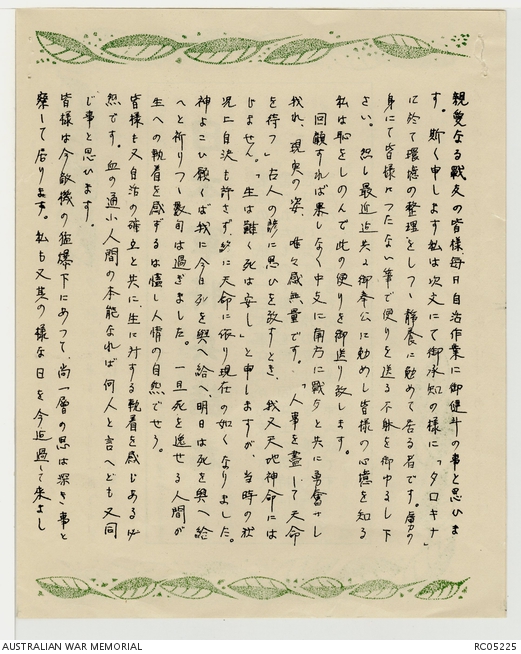 親愛なる戦友の皆様毎日自治作業に御健斗の事と思ひま
す。斯く申します私は次文にて御承知の様に「タロキナ」
に於て環境の整理をしつゝ静養に勉めて居る者です。
身にて皆様につたない筆で便りを送る不躾を御ゆるし下
さい。然し最近迄共に御奉公に勉めし皆様の心境を知る
私は恥をしのんで此の便りを御送り致します。
回顧すれば果しなく中支に南方に戦友と共に勇奮せし
我れ、現実の姿、唯々感無量です。「人事を盡して天命
を待つ」古人の諺に思ひを致すとき、我又天地神命には
じません。「生は難く死は安し」と申しますが、当時の状
況に自決も許さず終に天命に依り現在の如くなりました。
神よこひ願くば我に今日死を與へ給へ、明日は死を與へ給
へと祈りつゝ数旬は過ぎました。一旦死を逸せる人間が
生への執着を感ずるは憶し人情の自然でせう。
皆様も又自治の確立と共に、生に対する執着を感じあるは必
然です。血の通ふ人間の本能なれば何人と言へども又同
じ事と思ひます。
皆様は今敵機の猛爆下にあつて、尚一層の思は深き事と
察して居ります。私も又其の様な日を今迄過して来まし
AUSTRALIAN WAR MEMORIAL
RC05225